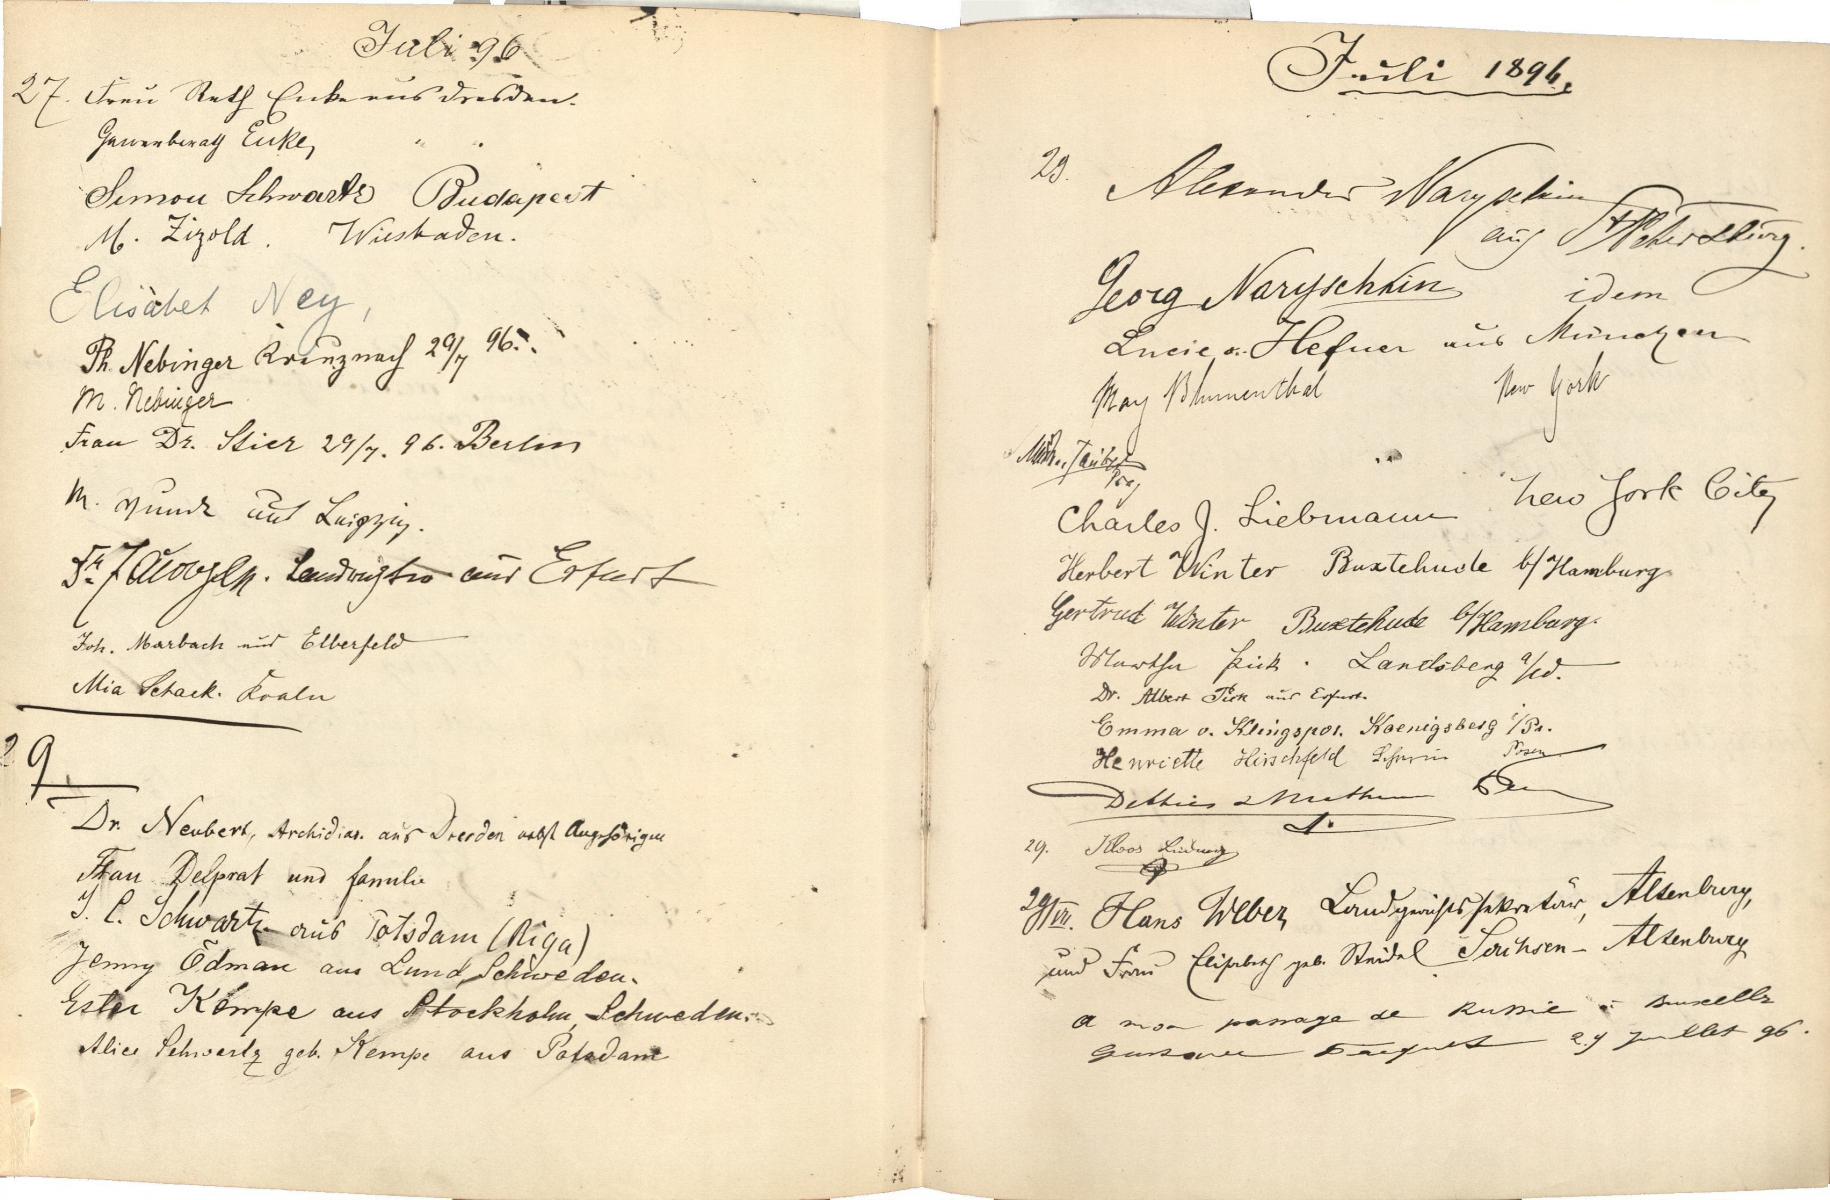 Juli 96
27. Frau Rath Enke aus Dresden.
Enke, " "
Simon Schwartz Budapest
M. Zizold. Wiesbaden.
Elisabet Ney,
Ph. Nebinger Kreuznach 29/7 96.
M. Nebinger
Frau Dr. Stier 29/7. 96. Berlin
M. aus Leipzig.
Dr. aus Erfurt
Joh. Marbach aus Elberfeld
Mia Schack. Koeln
29
Dr. Neubert, Archidiac. aus Dresden nebst Angehörigen
Frau Delprat und familie
Schwartz aus Potsdam (Riga)
Jenny Ödman aus Lund, Schweden.
Ester Kempe aus Stockholm, Schweden.
Alice Schwartz geb. Kempe aus Potsdam
Juli 1896.
29. Alexander Naryschkin
aus St Petersburg.
Georg Naryschkin idem
Lucie v. Hefner aus München
May Blumenthal New York
Charles J. Liebmann New York City
Herbert Winter Buxtehude b/Hamburg
Gertrud Winter Buxtehude b/Hamburg.
Martha Pick. Landsberg a/W.
Dr. Albert Pick aus Erfurt.
Emma v. Klingspor. Koenigsberg i/Pr.
Henriette Hirschfeld Posen
29. Kloos Ludwig
29/VII. Hans Weber, Landgerichtssekretär, Altenburg,
und Frau Elisabeth geb. Steidel Sachsen-Altenburg
a mon passage de Russie à Bruxelles
29 juillet 96.